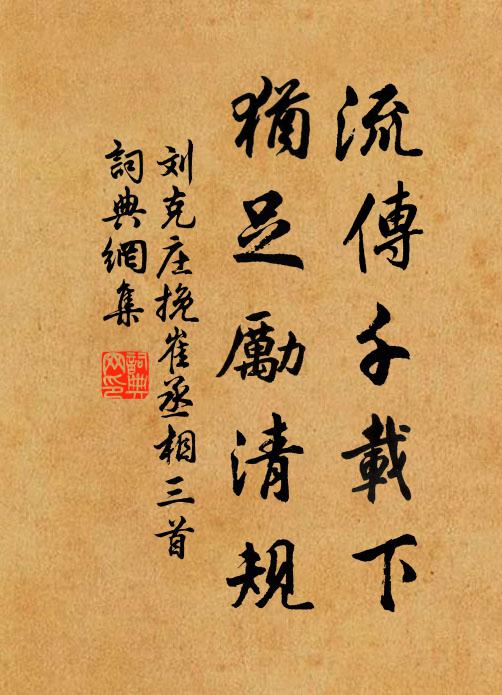 流傳千載下
猶足勵清規
刘克庄挽崔丞相三首
詞典網集
詞典网印